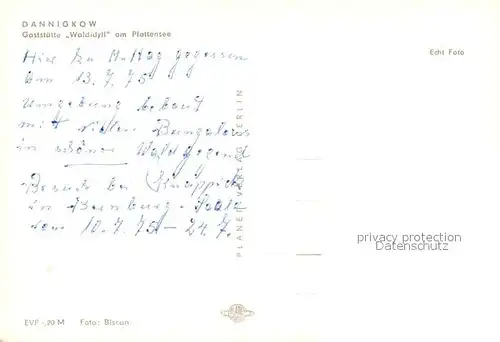 DANNIGKOW
Gaststätte „Waldidyll" am Plattensee
Echt Foto
Hier zu Mittag gegessen
am 13.7.75
Umgebung bebaut
mit vielen Bungalows
in schöner Waldgegend
Besuch bei
in Bernburg - Saale
vom 10.7.75 – 24.7.
PLANET-VERLAG BERLIN
privacy protection
Datenschutz
EVP -,20 M Foto: Biscan